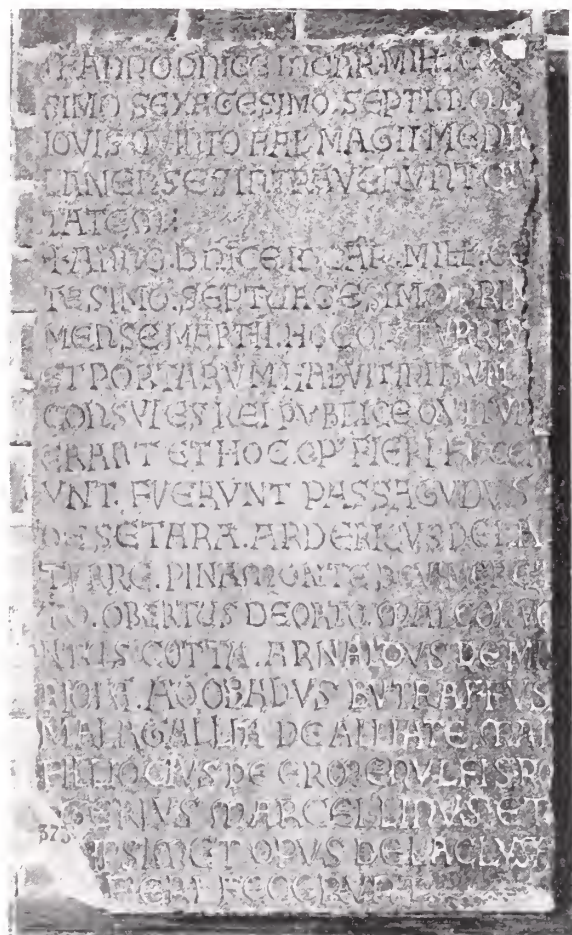 ANNO DNICE INCAR. MILL. CE
SIMO SEXAGESIMO SEPTIMO
IOVIS QVINTO KAL MAGII MEDIO
LANENSES INTRAVERVNT CIVI
TATEM:
+ANNO. DNICE INCAR. MILL. CE
TESIMO. SEPTVAGESIMO PRI
MENSE MARTII. HOC OP' TVRRIV
ET PORTARVM HABVIT INITIVM.
CONSVLES REI PVBLICE QVI NVNC
ERANT ET HOC. OP' FIERI FECER
VNT. FVERVNT PASSAGVDVS
DE SETARA. ARDERICVS DE LA
TVRRE. PINAMONTE DE VIMERCA
TO. OBERTUS DE ORTO. MALCO
COTTA. ARNALDVS DE M
ADOBADVS BVTRAFFVS
MALAGALLIA DE ALLIATE. MAL
FILIIOCIVS DE ERMENVLFIS RO
GERIVS MARCELLINVS ET
ET OPVS DE LA CLVS
373
FIERI FECERVNT